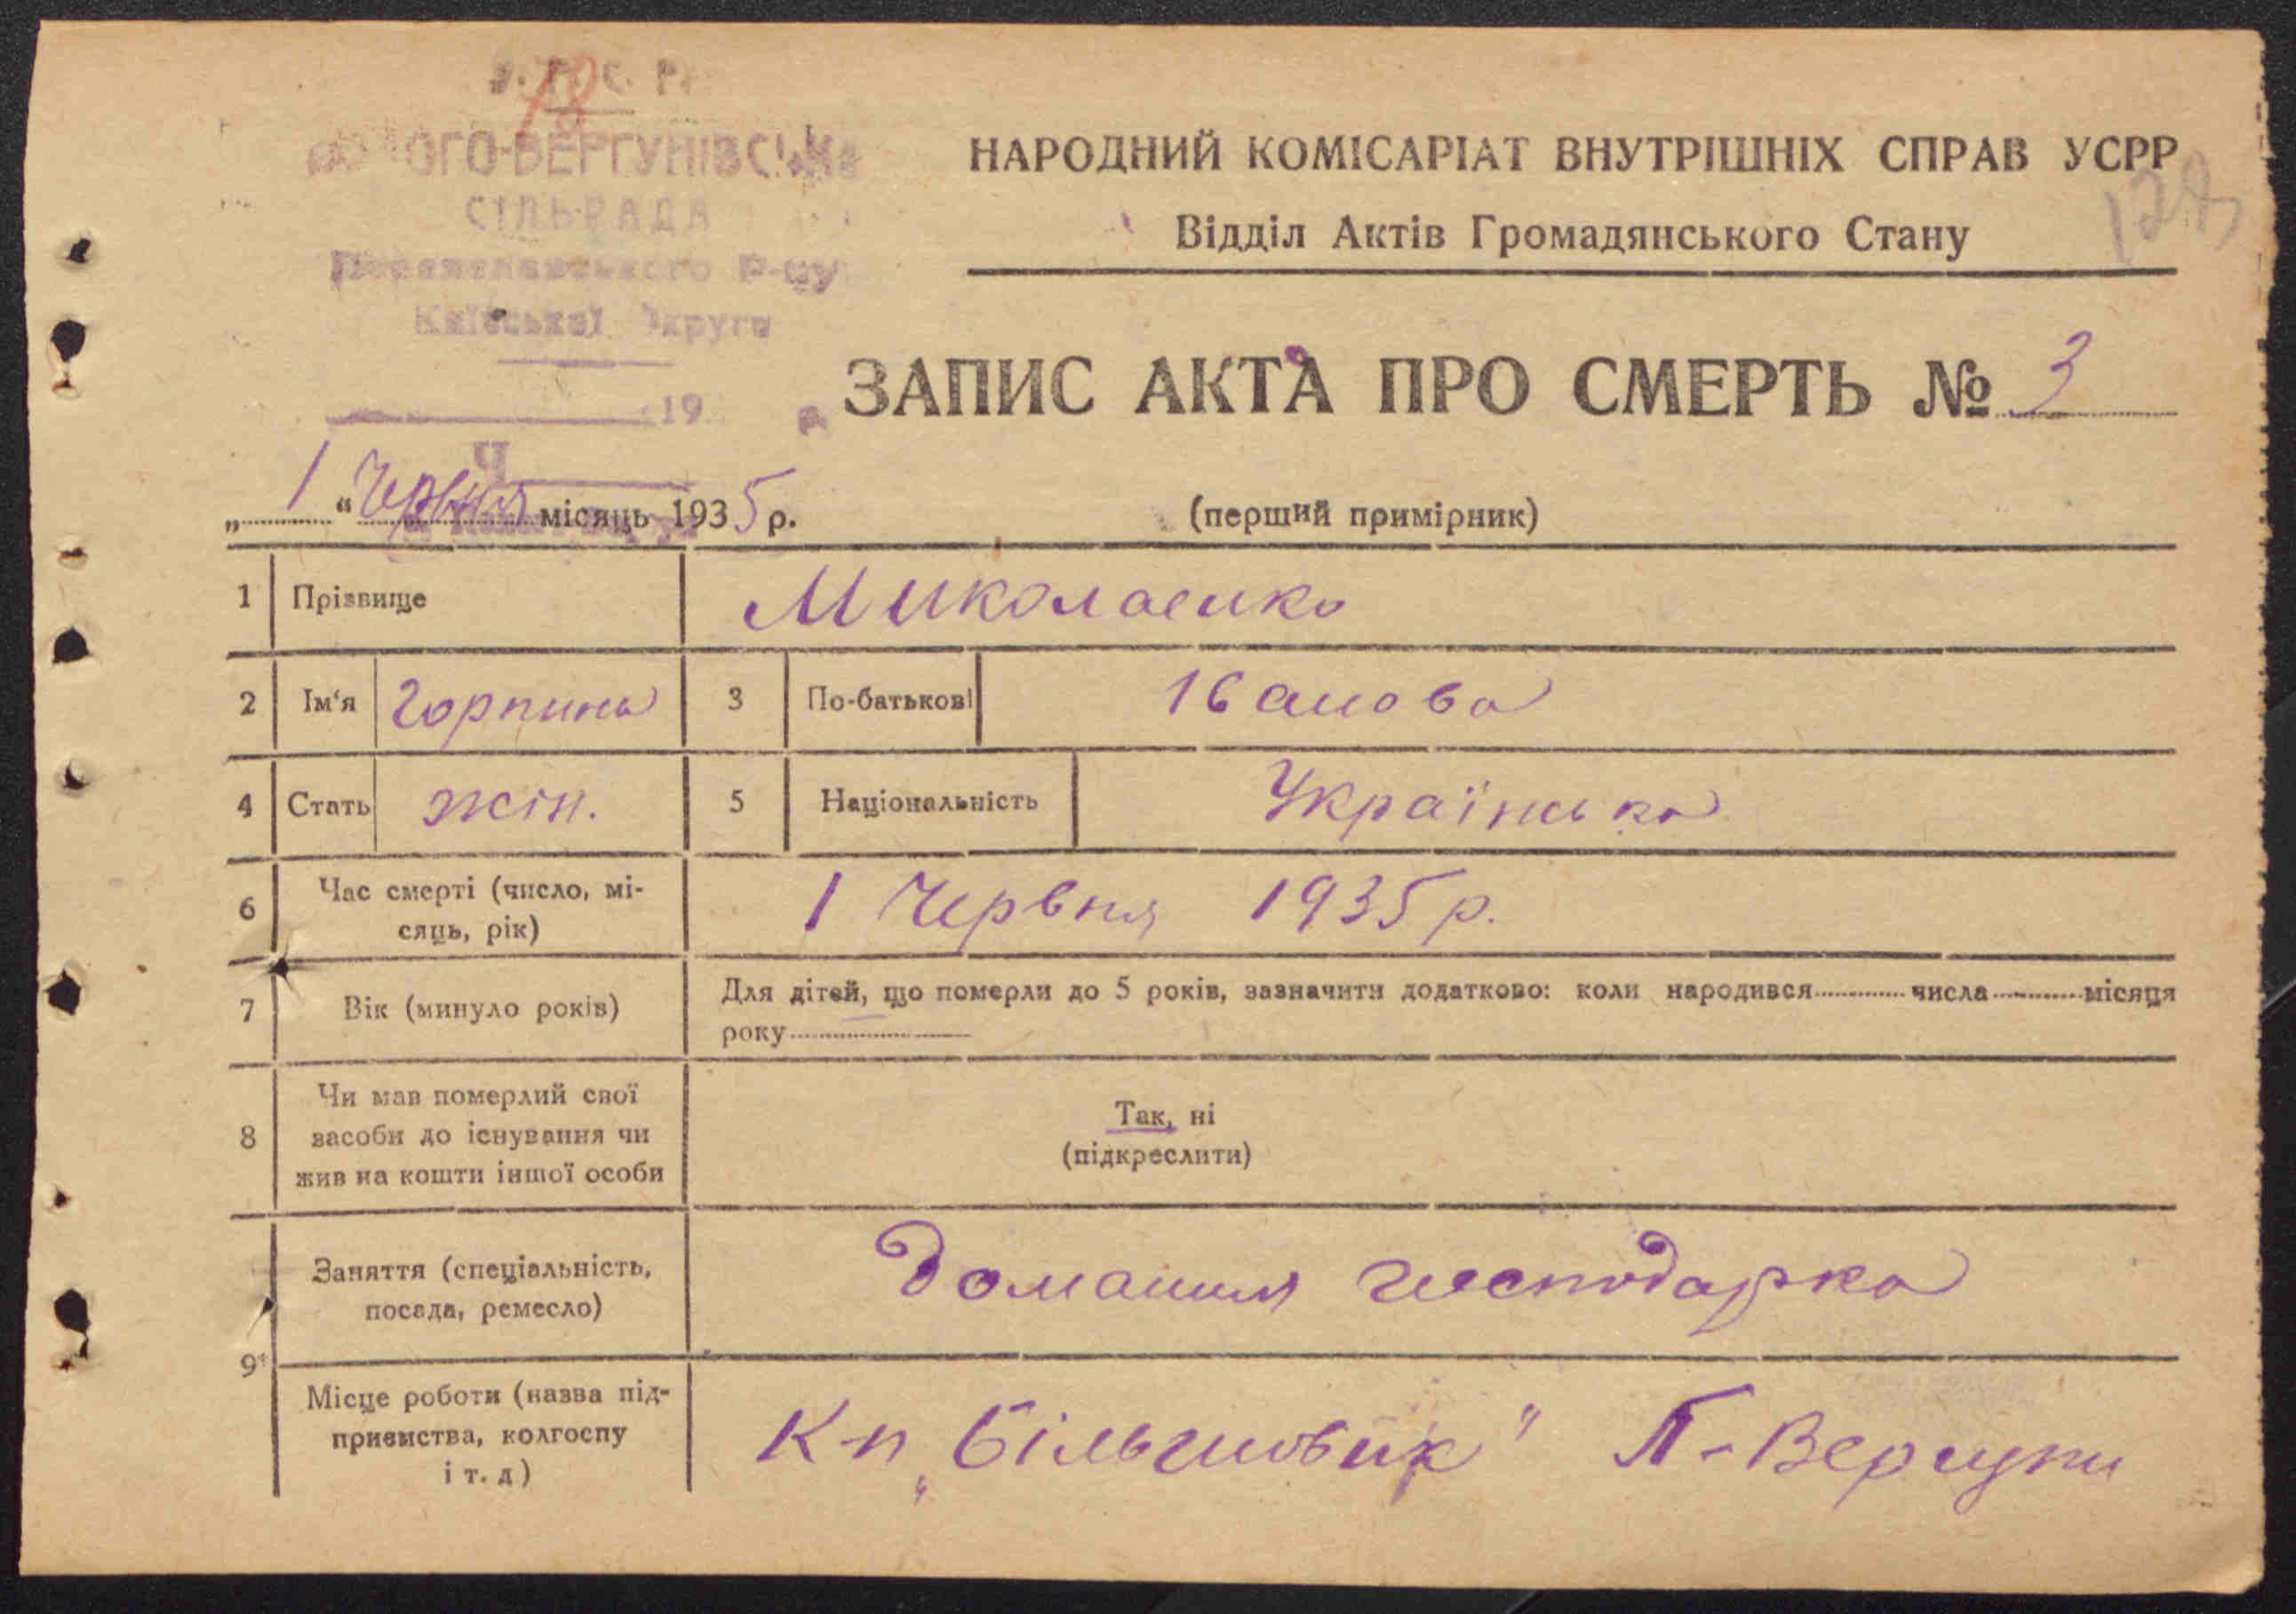 У. С. Р. Р.
70
ПОЛОГО-ВЕРГУНІВСЬКА
СІЛЬРАДА
Переяславського Р-ну
Київської Округи
19 р.
Ч
НАРОДНИЙ КОМІСАРІАТ ВНУТРІШНІХ СПРАВ УСРР
Відділ Актів Громадянського Стану
ЗАПИС АКТА ПРО СМЕРТЬ № 3
„ 1 “ Червня місяць 1935 р.
(перший примірник)
1 Прізвище Миколаенко
2 Ім‘я Горпина 3 По-батькові Іванова
4 Стать жін. 5 Національність Українка
6 Час смерті (число, мі-
сяць, рік) 1 Червня 1935 р.
7 Вік (минуло років) Для дітей, що померли до 5 років, зазначити додатково: коли народився числа місяця
року
8 Чи мав померлий свої
засоби до існування чи
жив на кошти іншої особи
Так, ні
(підкреслити)
9 Заняття (спеціальність,
посада, ремесло) Домашня господарка
Місце роботи (назва під-
приємства, колгоспу
і т. д) К-п „Більшовик" П-Вергуни